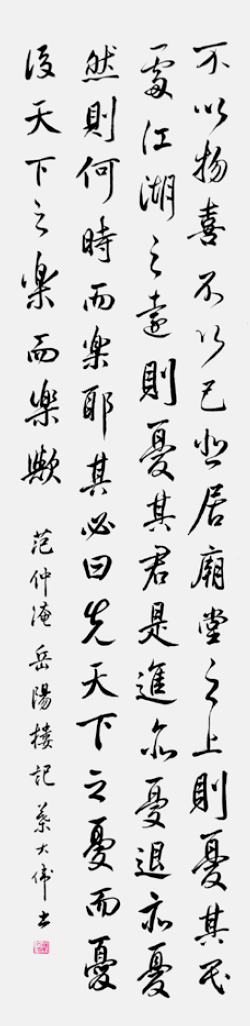 不以物喜不以己悲居廟堂之上則憂其民
處江湖之遠則憂其君是進亦憂退亦憂
然則何時而樂耶其必曰先天下之憂而憂
後天下之樂而樂歟
范仲淹岳陽樓記 大偉書